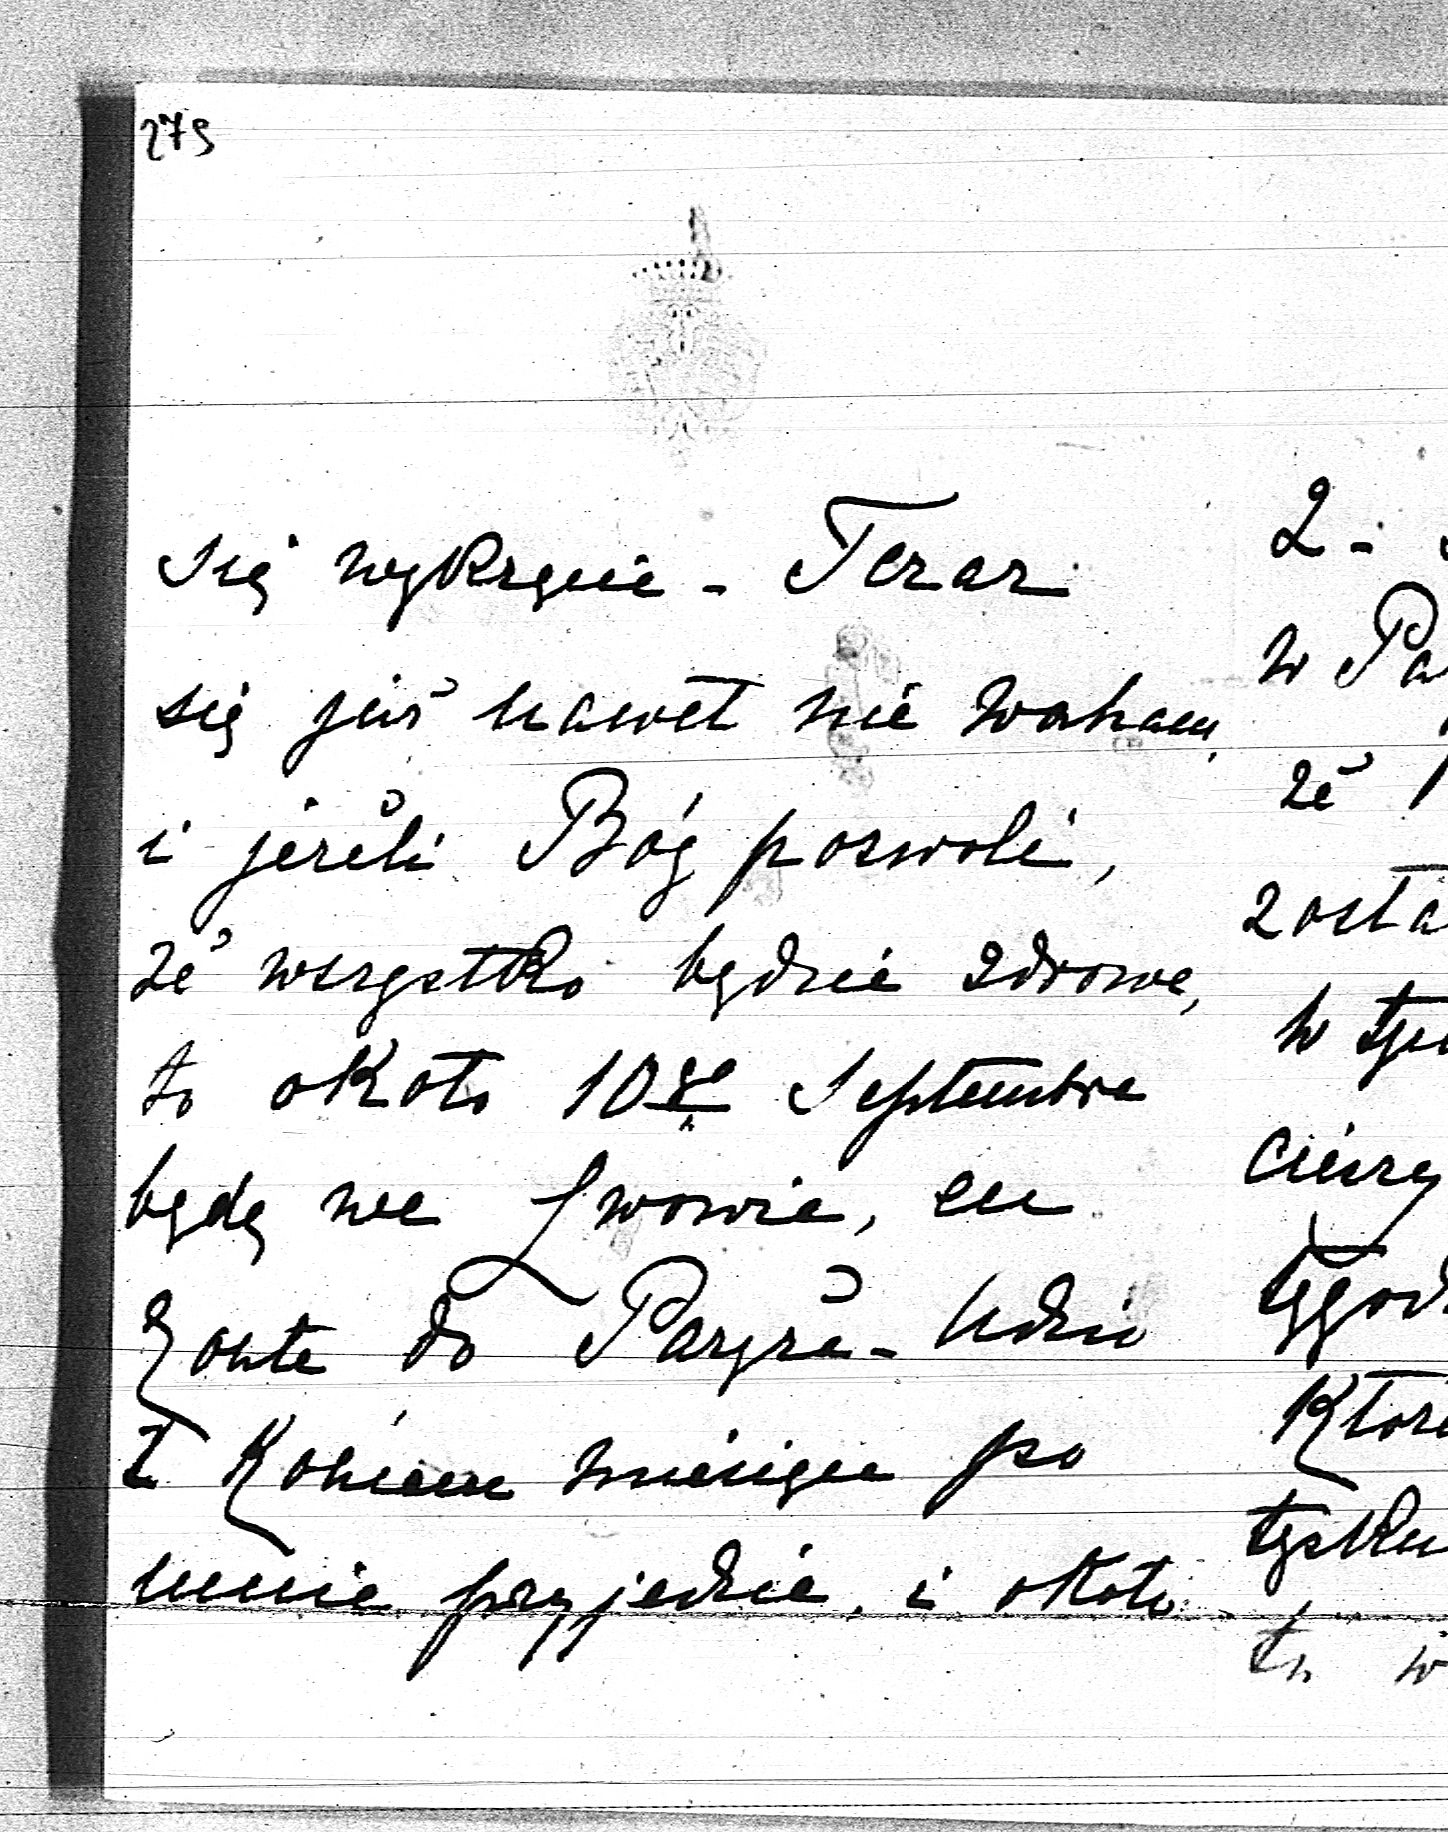 279
się wykręcić - Teraz
się już nawet nie waham,
i jeżeli Bóg pozwoli,
że wszystko będzie zdrowe,
to około 10go Septembra
będę we Lwowie, en
route do Paryża - Udzio
z końcem miesiąca po
mnie przyjedzie, i około
2 -
w Pa
że
zosta
w tym
cieszy
tygod
które
tysku
tu w